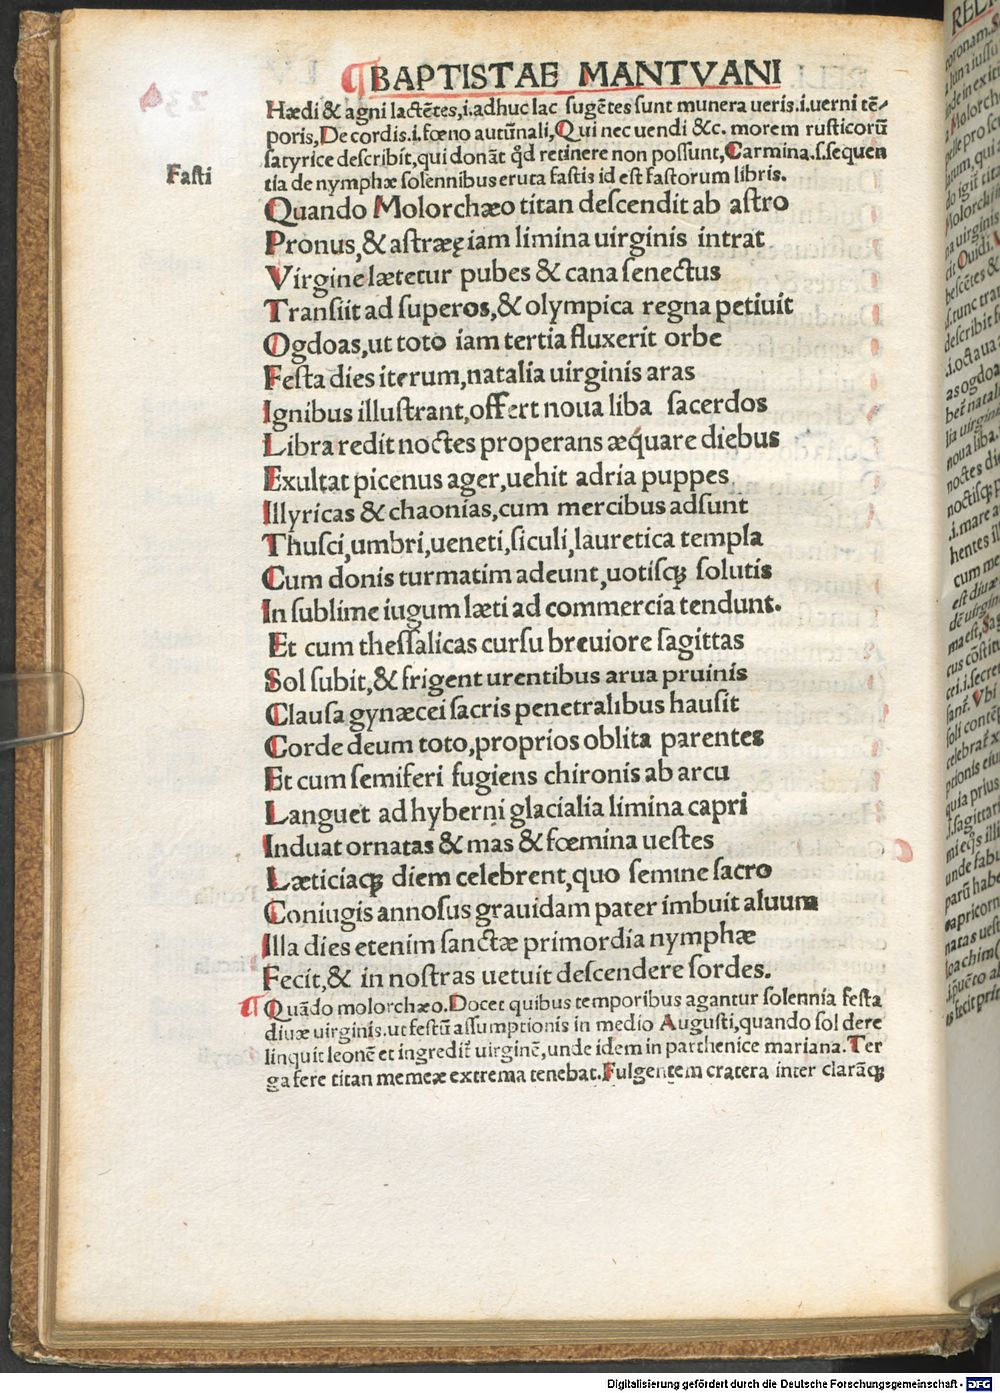 BAPTISTAE MANTVANI
Hædi & agni lactētes,i.adhuc lac sugētes sunt munera ueris.i.uerni tē-
poris,De cordis.i.fœno autūnali,Qui nec uendi &c. morem rusticorū
satyrice describit,qui donāt qd̄ retinere non possunt,Carmina.s.sequen
Fasti
tia de nymphæ solennibus eruta fastis id est fastorum libris.
Quando Molorchæo titan descendit ab astro
Pronus,& astrææ iam limina uirginis intrat
Virgine lætetur pubes & cana senectus
Transiit ad superos,& olympica regna petiuit
Ogdoas,ut toto iam tertia fluxerit orbe
Festa dies iterum,natalia uirginis aras
Ignibus illustrant,offert noua liba sacerdos
Libra redit noctes properans æquare diebus
Exultat picenus ager,uehit adria puppes
Illyricas & chaonias,cum mercibus adsunt
Thusci,umbri,ueneti,siculi,lauretica templa
Cum donis turmatim adeunt,uotisqꝫ solutis
In sublime iugum læti ad commercia tendunt.
Et cum thessalicas cursu breuiore sagittas
Sol subit,& frigent urentibus arua pruinis
Clausa gynæcei sacris penetralibus hausit
Corde deum toto,proprios oblita parentes
Et cum semiferi fugiens chironis ab arcu
Languet ad hyberni glacialia limina capri
Induat ornatas & mas & fœmina uestes
Læticiaqꝫ diem celebrent,quo semine sacro
Coniugis annosus grauidam pater imbuit aluum
Illa dies etenim sanctæ primordia nymphæ
Fecit,& in nostras uetuit descendere sordes.
¶ Quādo molorchæo.Docet quibus temporibus agantur solennia festa
diuæ uirginis.ut festū assumptionis in medio Augusti,quando sol dere
linquit leonē et ingredit̄ uirginē,unde idem in parthenice mariana.Ter
ga fere titan memeæ extrema tenebat.Fulgentem cratera inter clarāqꝫ
Digitalisierung gefördert durch die Deutsche Forschungsgemeinschaft - DFG